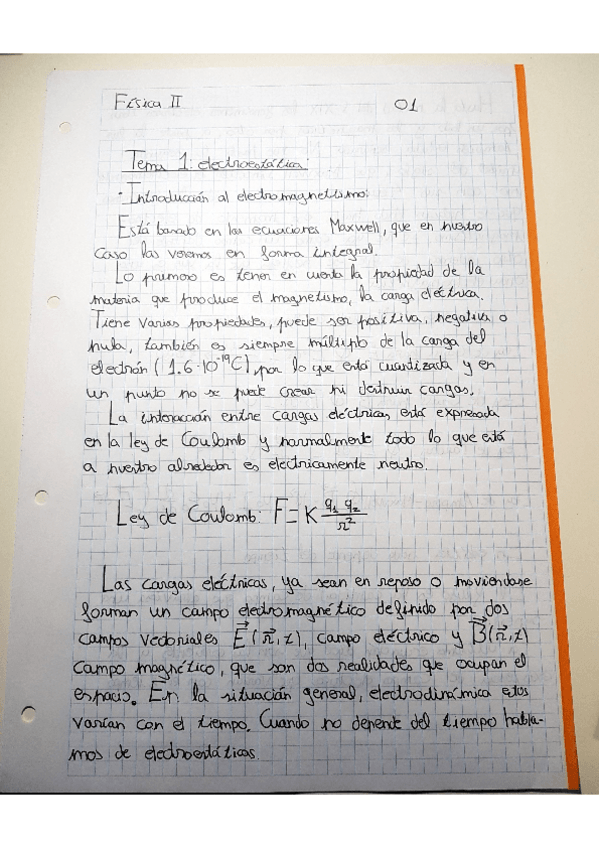 Física II 01
Tema 1: electroestática:
· Introducción al electromagnetismo:
Está basado en las ecuaciones Maxwell, que en nuestro
caso las veremos en forma integral.
Lo primero es tener en cuenta la propiedad de la
materia que produce el magnetismo, la carga eléctrica.
Tiene varias propiedades, puede ser positiva, negativa o
nula, también es siempre múltiplo de la carga del
electrón (1.6·10⁻¹⁹C), por lo que está cuantizada y en
un punto no se puede crear ni destruir cargas.
La interacción entre cargas eléctricas está expresada
en la ley de Coulomb y normalmente todo lo que está
a nuestro alrededor es electricamente neutro.
Ley de Coulomb: F = K q₁ q₂ / r²
Las cargas eléctricas, ya sean en reposo o moviendose
forman un campo electromagnético definido por dos
campos vectoriales E⃗(r⃗,t), campo eléctrico y B⃗(r⃗,t)
campo magnético, que son dos realidades que ocupan el
espacio. En la situación general, electrodinámica estos
varían con el tiempo. Cuando no depende del tiempo habla-
mos de electroestáticas.